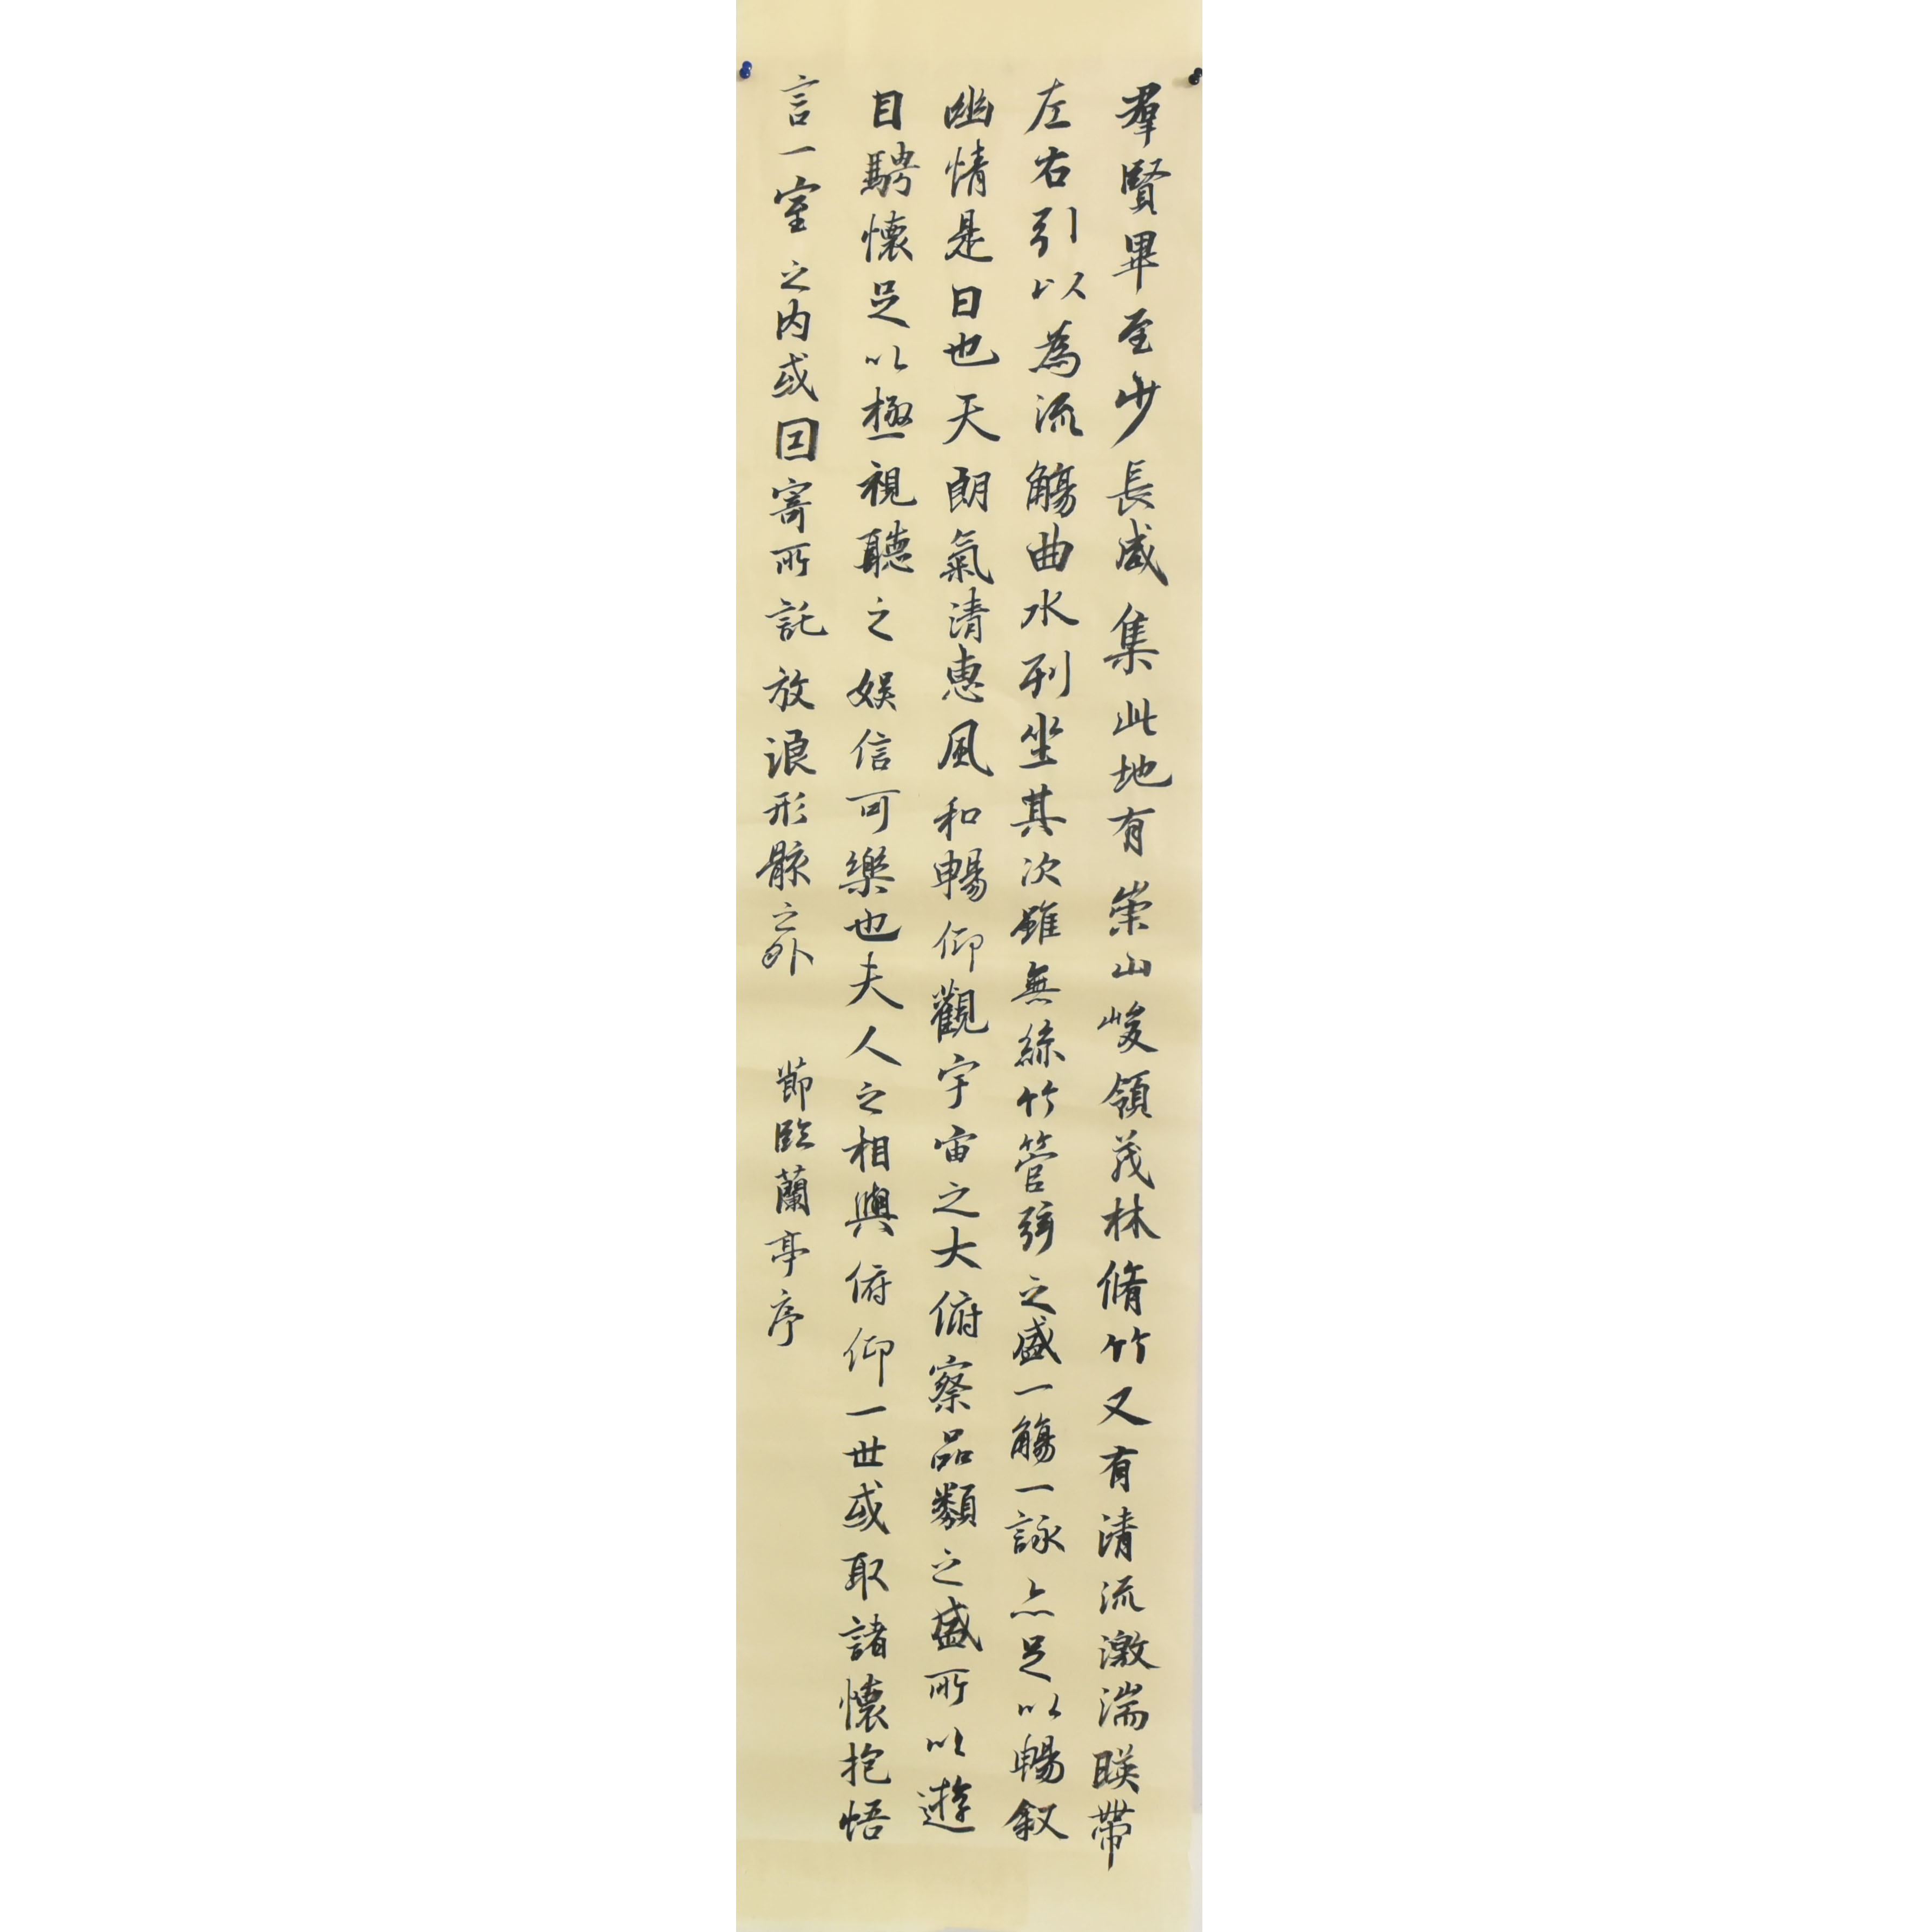 羣賢畢至少長咸集此地有崇山峻領茂林脩竹又有清流激湍暎帶
左右引以為流觴曲水列坐其次雖無絲竹管弦之盛一觴一詠亦足以暢叙
幽情是日也天朗氣清惠風和暢仰觀宇宙之大俯察品類之盛所以遊
目騁懷足以極視聽之娛信可樂也夫人之相與俯仰一世或取諸懷抱悟
言一室之内或因寄所託放浪形骸之外 節臨蘭亭序